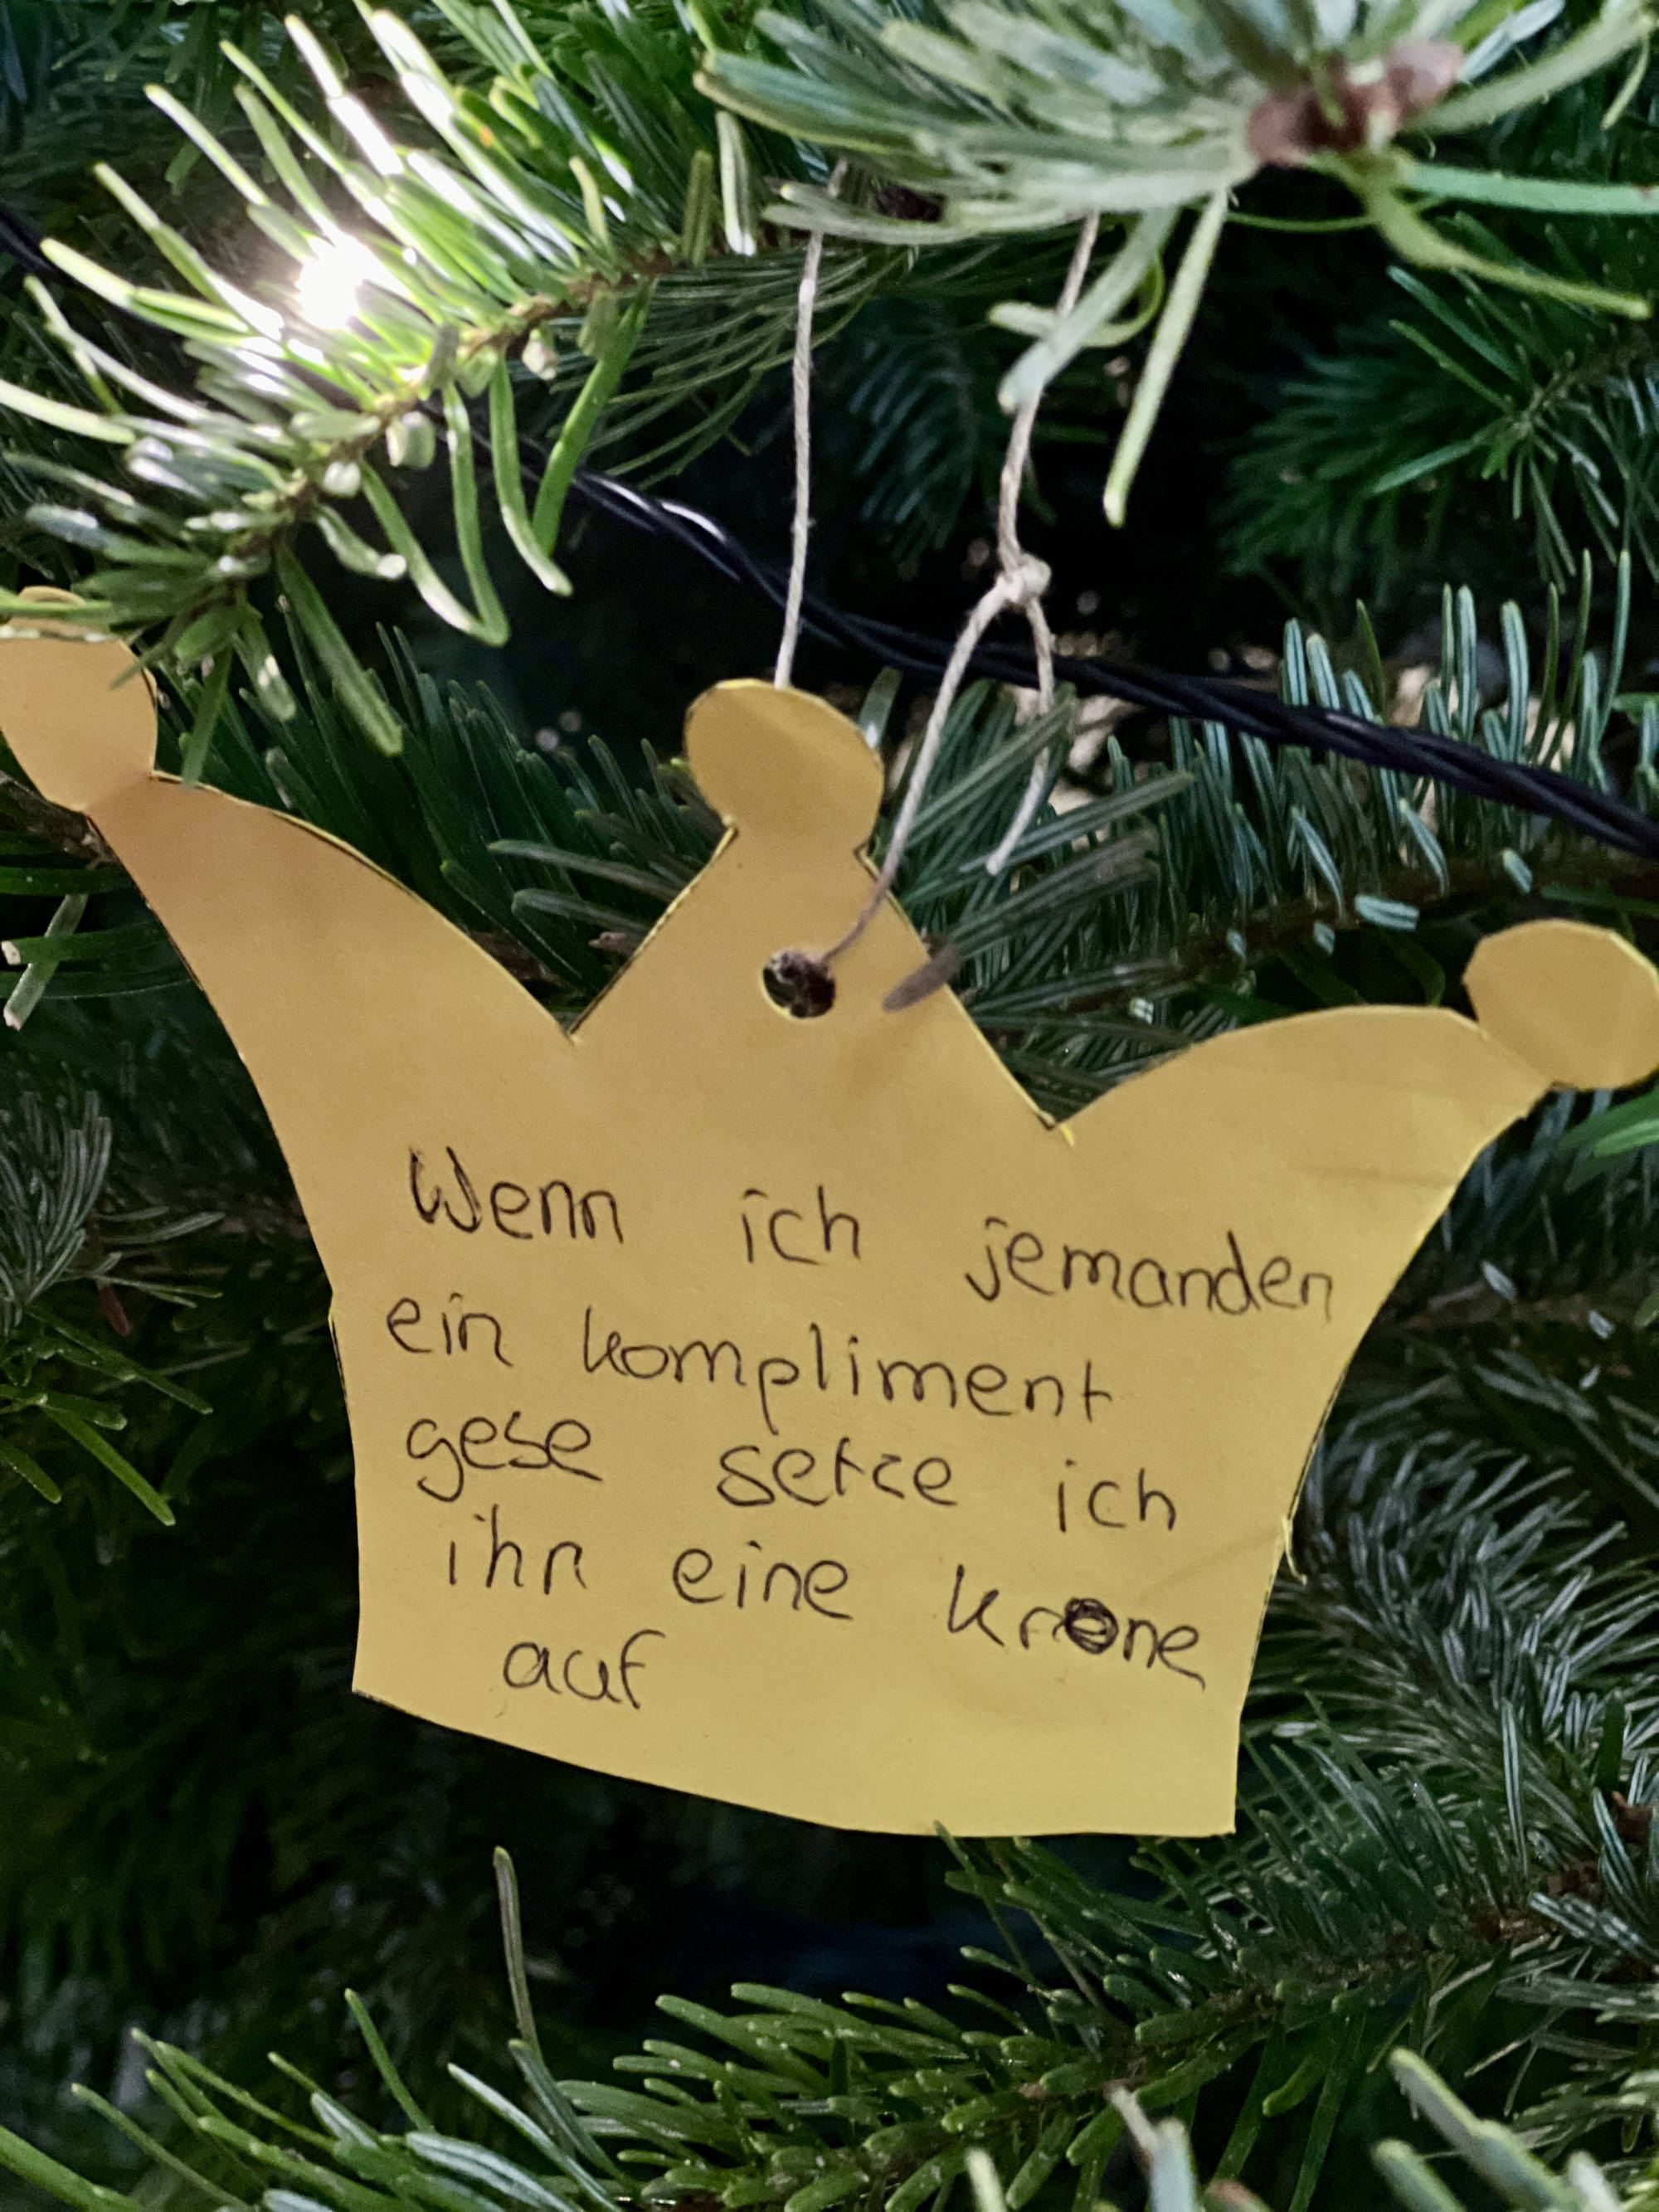 Wenn ich jemanden
ein kompliment
gese setze ich
ihn eine krone
auf